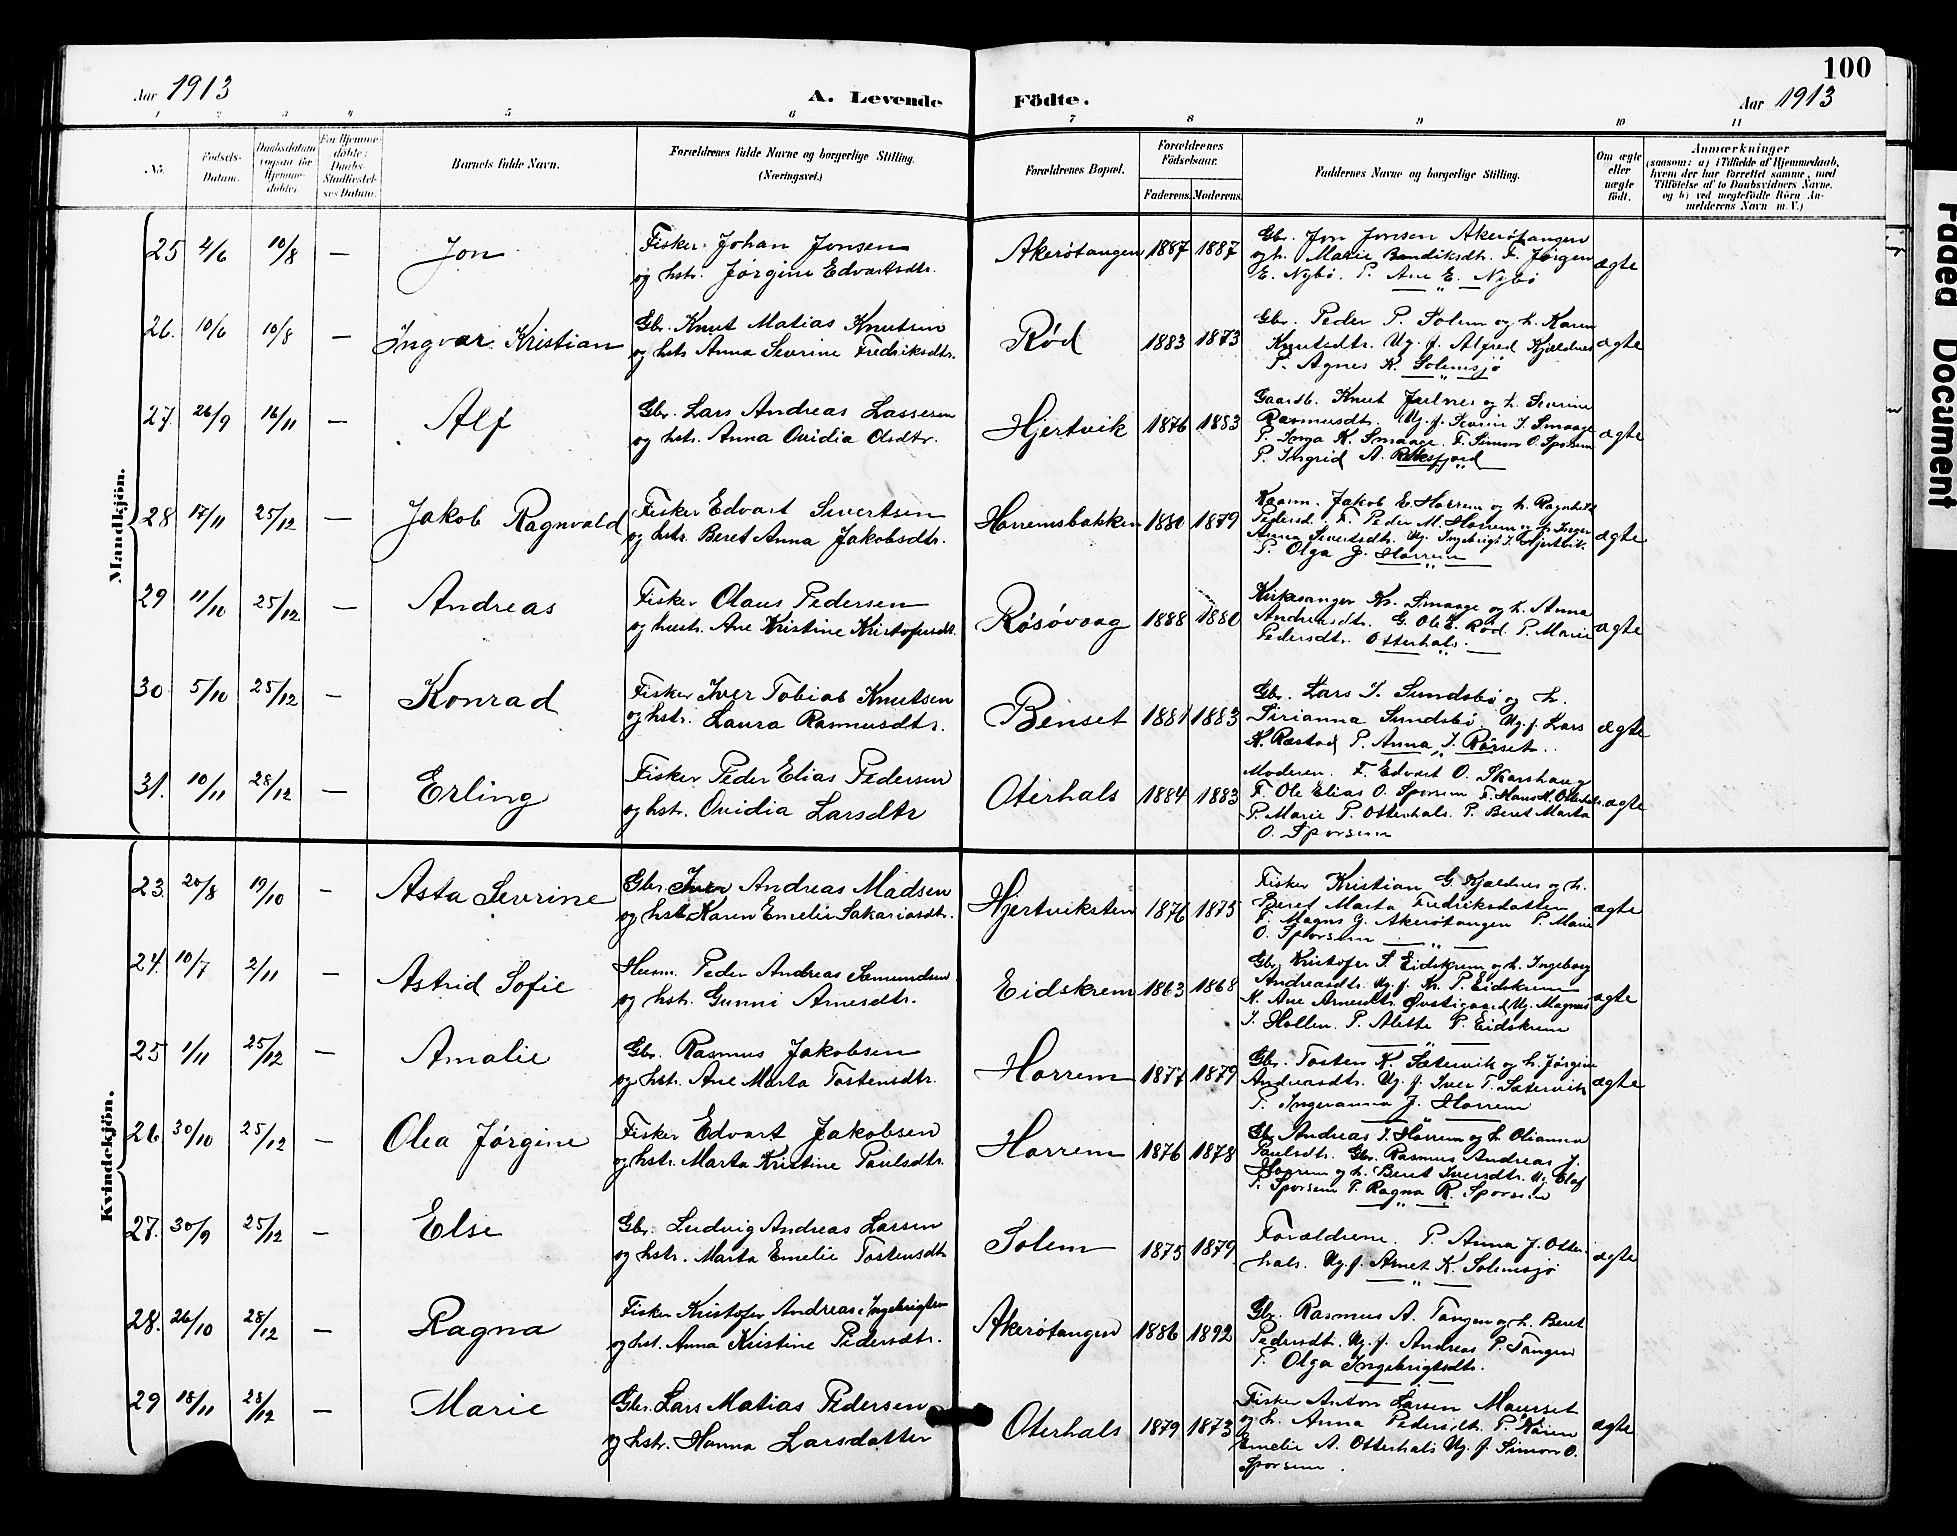 100
Aar 1913
A. Levende Födte.
Aar 1913
1 2 3 4 5 6 7 8 9 10 11
No.
Födsels-Datum.
Daabsdatum (ogsaa for Hjemme-döbte).
For Hjemme-döbte: Daabs-Stadfæstel-ses Datum.
Barnets fulde Navn.
Forældrenes fulde Navne og borgerlige Stilling.
(Næringsvei.)
Forældrenes Bopæl.
Forældrenes Födselsaar.
Faderens. Moderens.
Faddernes Navne og borgerlige Stilling.
Om ægte eller uægte födt.
Anmærkninger
(saasom: a) i Tilfælde af Hjemmedaab,
hvem der har forrettet samme, med
Tilföielse af to Daabsvidners Navne,
og b) ved uægtefödte Börn An-
melderens Navn m. V.)
Mandkjön.
25 4/6 10/8 — Jon
Fisker Johan Jonsen
og hstr. Jørgine Edvartsdtr.
Akerøtangen 1887 1887
Gbr. Jon Jonsen Akerøtangen
og h. Marie Bendiksdtr. F. Jørgen
E. Nybø. P. Ane E. Nybø
ægte
26. 10/6 10/8 — Ingvar Kristian
Gbr. Knut Matias Knutsen
og hstr Anna Sevrine Fredriksdtr.
Rød 1883 1873
Gbr. Peder P. Solem og h. Karen
Knutsdtr. Ug. f. Alfred Kjældnes
P. Agnes K. Solemsjø
ægte
27. 26/9 16/11 — Alf
Gbr. Lars Andreas Lassesen
og hstr. Anna Ovidia Olsdtr.
Hjertvik 1876 1883
Gaardb. Knut Julnes og h. Sevrine
Rasmusdtr. Ug. f. Severin I. Smaage
P. Inga K. Smaage. F. Simon O. Sporsem
P. Ingrid A.
ægte
28 17/11 25/12 — Jakob Ragnvald
Fisker Edvart Sivertsen
og hstr. Beret Anna Jakobsdtr.
Harremsbakken 1880 1879
Jakob E. Harrem og h. Ragnhild
Pedersd. F. Peder M. Harrem og h. Inger
Anna Sivertsdtr. Ug. Ingebrigt I. Hjertvik.
P. Olga J. Harrem
ægte
29 11/10 25/12 — Andreas
Fisker Olaus Pedersen
og hustr. Ane Kristine Kristofersdtr.
Røsøvaag 1888 1880
Kirkesanger Kr. Smaage og h. Anna
Andreasdtr. G. Ole E. Rød. P. Marie
Pedersdtr. Otterhals.
ægte
30. 5/10 25/12 — Konrad
Fisker Iver Tobias Knutsen
og hstr. Laura Rasmusdtr.
Benset 1881 1883
Gbr. Lars I. Sundsbø og h.
Sirianna Sundsbø. Ug. f. Lars
K. Ræstad P. Anna I. Rørset.
ægte
31. 10/11 28/12 — Erling
Fisker Peder Elias Pedersen
og hstr. Ovidia Larsdtr
Oterhals 1884 1883
Moderen. F. Edvart O. Skarshaug
F. Ole Elias O. Sporsem F. Hans M. Otterhals
P. Marie P. Otterhals. P. Beret Marta
O. Sporsem
ægte
Kvindekjön.
23. 20/8 19/10 — Asta Sevrine
Gbr. Iver Andreas Madsen
og hstr Karen Emelie Sakariasdtr.
Hjertviksten 1876 1875
Fisker Kristian G. Kjældnes og h.
Beret Marta Fredriksdatter
F. Magns G. Akerøtangen P. Marie
O. Sporsem
ægte
24. 10/7 2/11 — Astrid Sofie
Husm. Peder Andreas Samundsen
og hstr. Gunni Arnesdtr.
Eidskrem 1863 1868
Gbr. Kristofer S. Eidskrem og h. Ingeborg
Andreasdtr. Ug. f. Kr. P. Eidskrem
K. Ane Arnesdtr. Øvstigaard Ug. Magnus
I. Hollen. P. Alette P. Eidskrem
ægte
25 1/11 25/12 — Amalie
Gbr. Rasmus Jakobsen
og hstr. Ane Marta Tostensdtr.
Harrem 1877 1879
Gbr. Tosten K. Sætervik og h. Jørgine
Andreasdtr. Ug. f. Iver T. Sætervik
P. Ingeranna J. Harrem
ægte
26 30/10 25/12 — Olea Jørgine
Fisker Edvart Jakobsen
og hstr. Marta Kristine Paulsdtr.
Harrem 1876 1878
Gbr. Andreas I. Harrem og h. Olianna
Paulsdtr. Gbr. Rasmus Andreas J.
Harrem og h. Beret Iversdtr. Ug. Olaf
P. Sporsem P. Ragna R. Sporsem
ægte
27. 30/9 25/12 — Else
Gbr. Ludvig Andreas Larsen
og hstr. Marta Emelie Tostensdtr
Solem 1875 1879
Forældrene. P. Anna J. Otter-
hals. Ug. f. Arnet K. Solemsjø
ægte
28. 26/10 28/12 — Ragna
Fisker Kristofer Andreas Ingebrigtsen
og hst. Anna Kristine Pedersdtr.
Akerøtangen 1886 1892
Gbr. Rasmus A. Tangen og h. Beret
Pedersdtr. Ug. f. Andreas P. Tangen
P. Olga Ingebrigtsdtr.
29 18/11 28/12 — Marie
Gbr. Lars Matias Pedersen
og hstr. Hanna Larsdatter
Oterhals 1879 1873
Fisker Anton Larsen Mauset
og h. Anna Pedersdtr. P. Karen
Emelie A. Otterhals Ug. f. Simon O.
Sporsem.
ægte
Faded Document